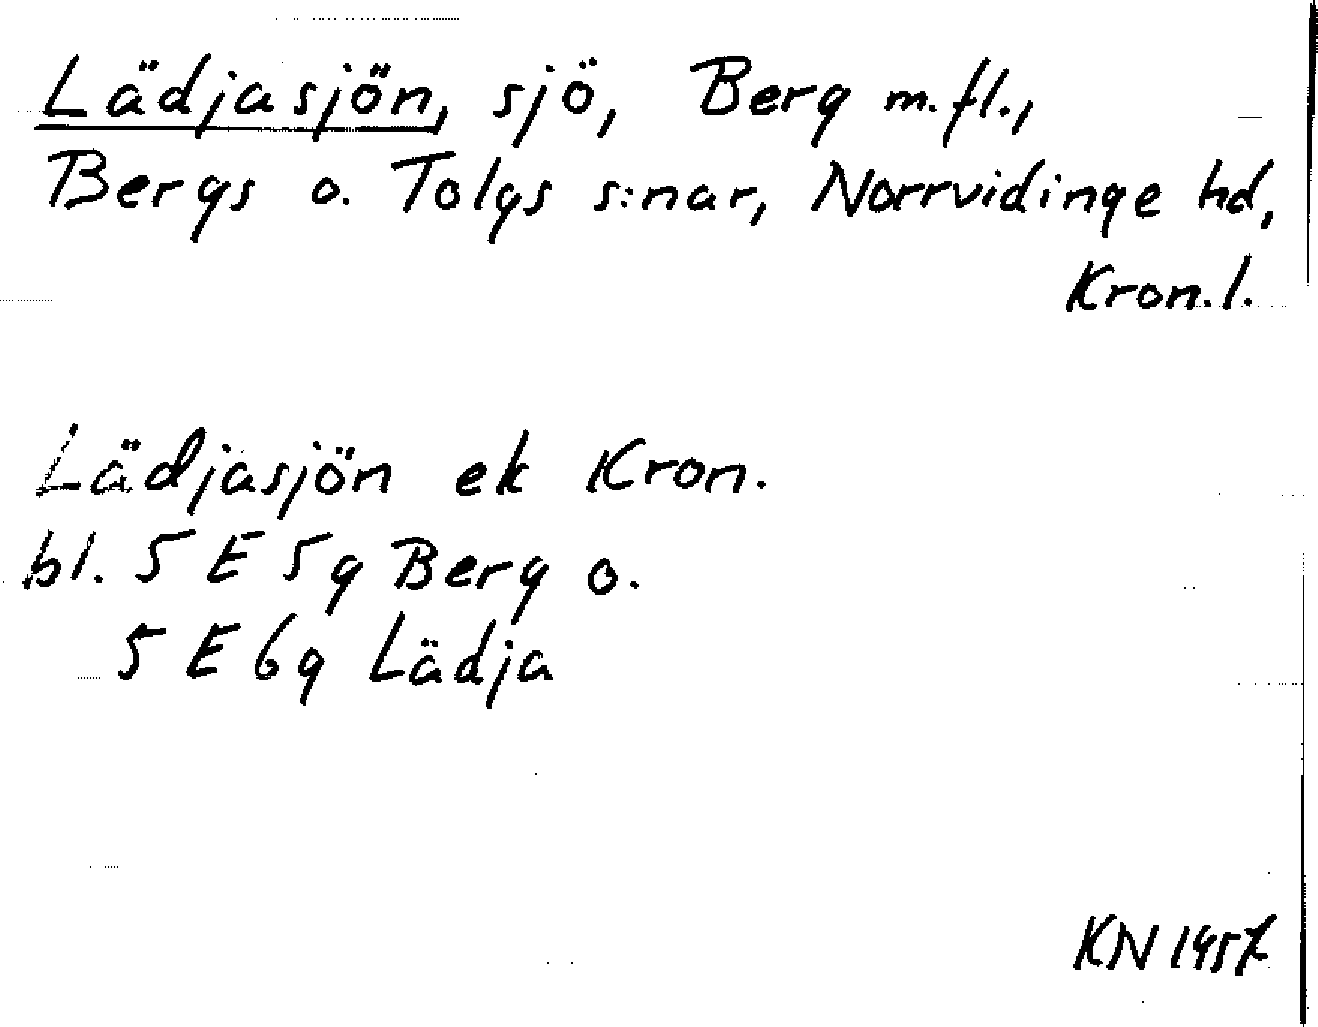 Lädjasjön, sjö, Berg m.fl.,
Bergs o. Tolgs s:nar, Norrvidinge hd,
Kron.l.
Lädjasjön ek Kron.
bl. 5 E 5g Berg o.
5 E 6g Lädja
KN 1957